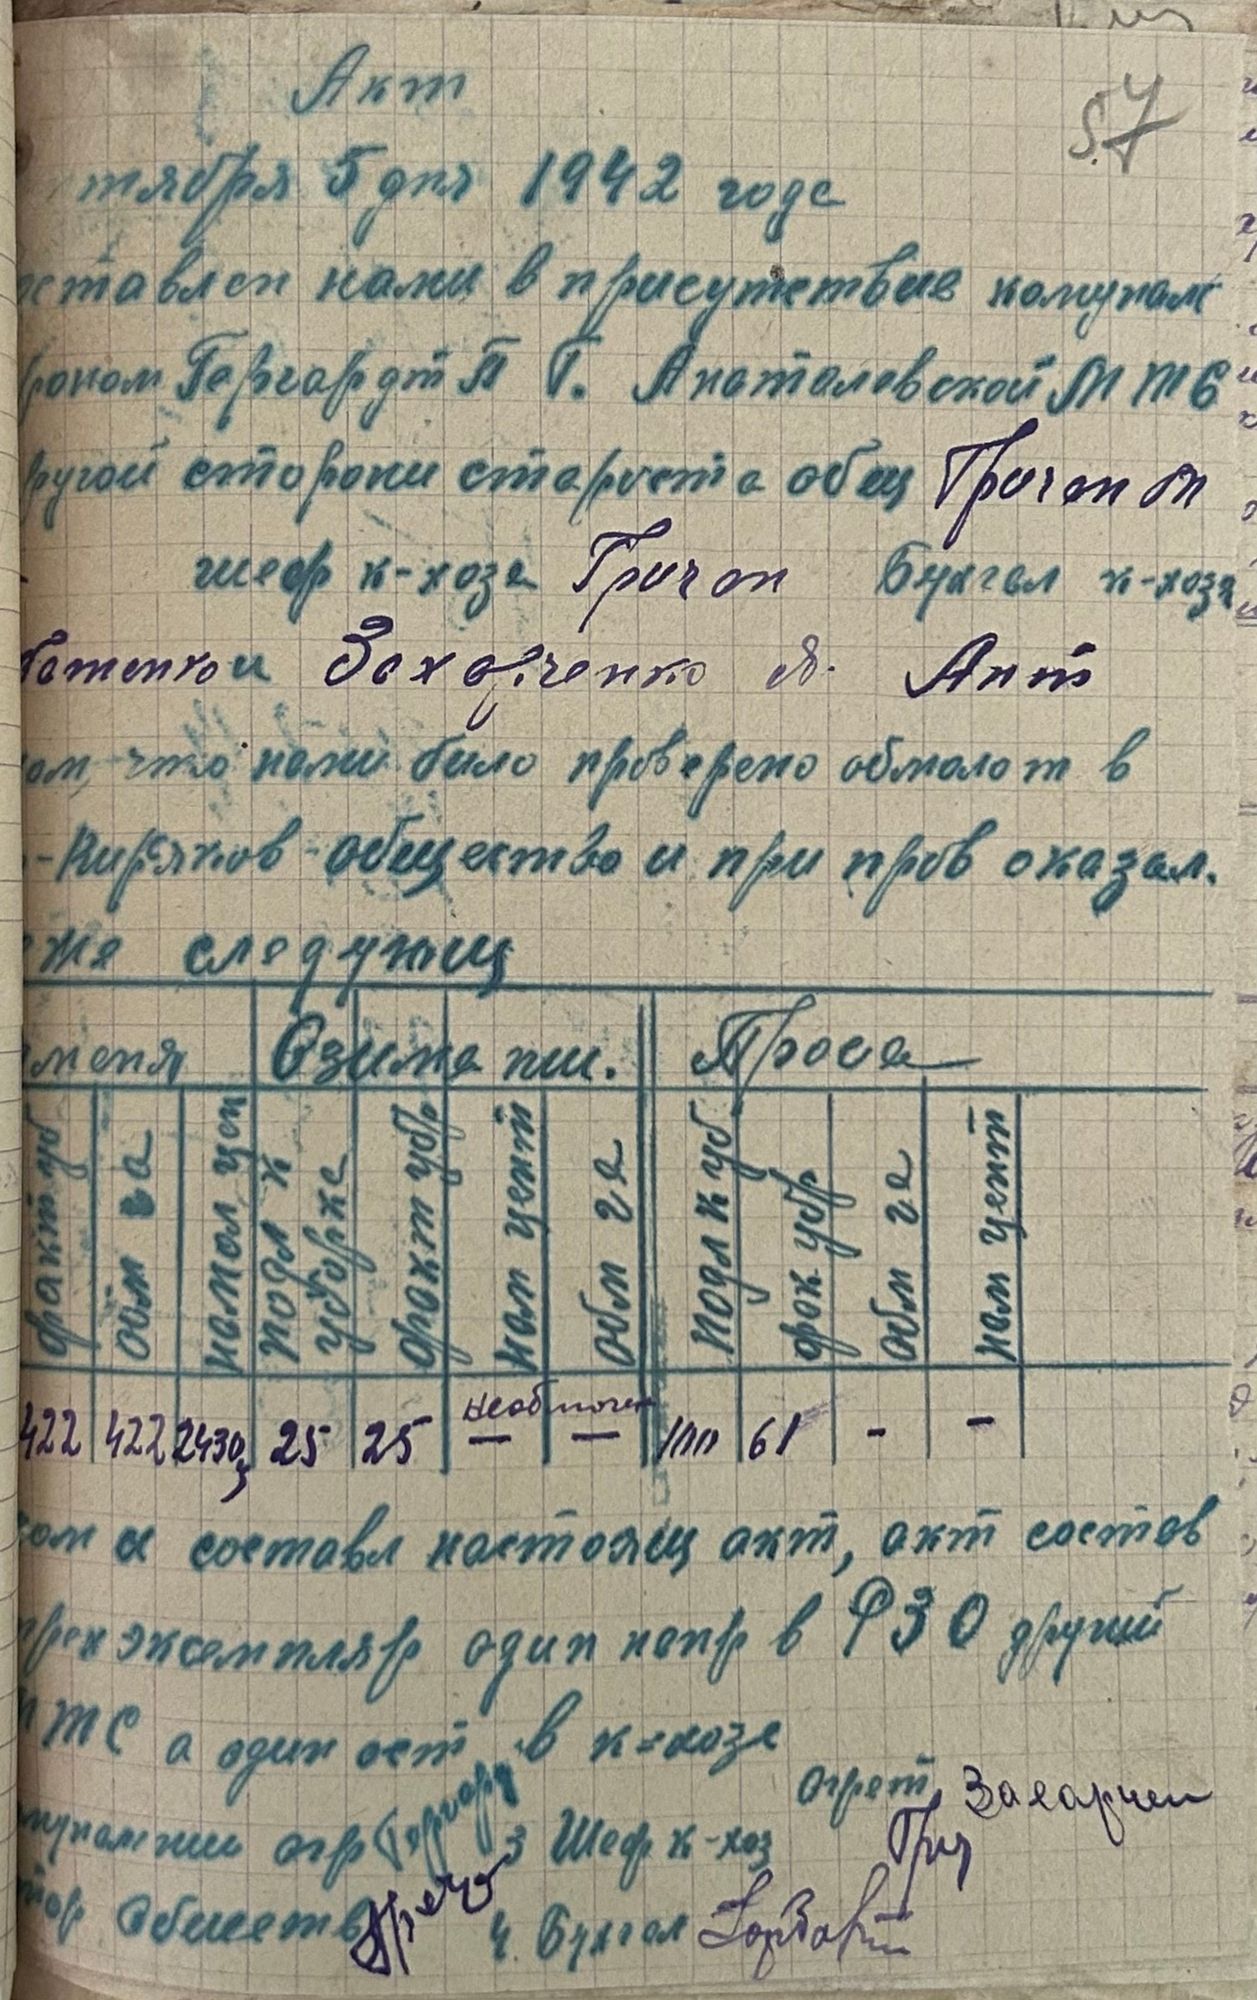 57
Акт
тября 5 дня 1942 года
ставлен нами в присутствие
роном Гергардт П Г. Анатолевской МТС
ругой сторони староста общ Гричан М
шеф к-хоза Гричан Бухгал к-хоза
батенко и Захарченко Я. Акт
ом, что нами било проверено обмолот в
-Киряков-общество и при пров оказал.
же следующ
меня Озима пш. Проса
факт уб обм га намол цен подл к уборке факт убр нам цент обм га подл к уб фак убр обм га нам цент
422 422 2430 25 25 — — 100 61 - -
необмолоч
ом и составл настоящ акт, акт состав
трех экземпляр один напр в РЗО другий
МТС а один ост в к-хозе
агр Гергард 3 Шеф к-хоз Грич
агрет Захарчен
Обшеств 4. Бухгал